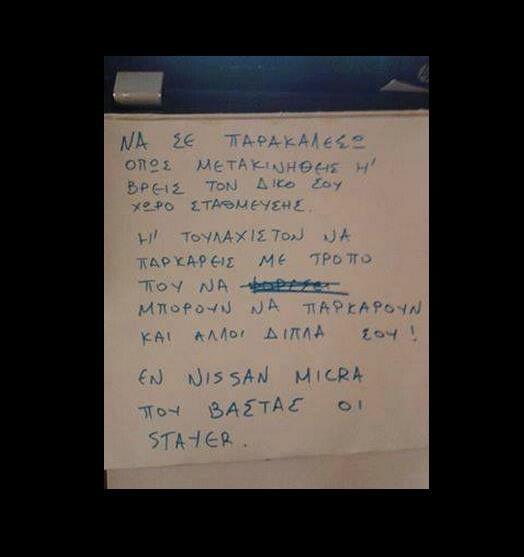 ΝΑ ΣΕ ΠΑΡΑΚΑΛΕΣΩ
ΟΠΩΣ ΜΕΤΑΚΙΝΗΘΕΙΣ Η'
ΒΡΕΙΣ ΤΟΝ ΔΙΚΟ ΣΟΥ
ΧΩΡΟ ΣΤΑΘΜΕΥΣΗΣ.
Η' ΤΟΥΛΑΧΙΣΤΟΝ ΝΑ
ΠΑΡΚΑΡΕΙΣ ΜΕ ΤΡΟΠΟ
ΠΟΥ ΝΑ
ΜΠΟΡΟΥΝ ΝΑ ΠΑΡΚΑΡΟΥΝ
ΚΑΙ ΑΛΛΟΙ ΔΙΠΛΑ ΣΟΥ!
ΕΝ NISSAN MICRA
ΠΟΥ ΒΑΣΤΑΣ ΟΙ
STAYER.